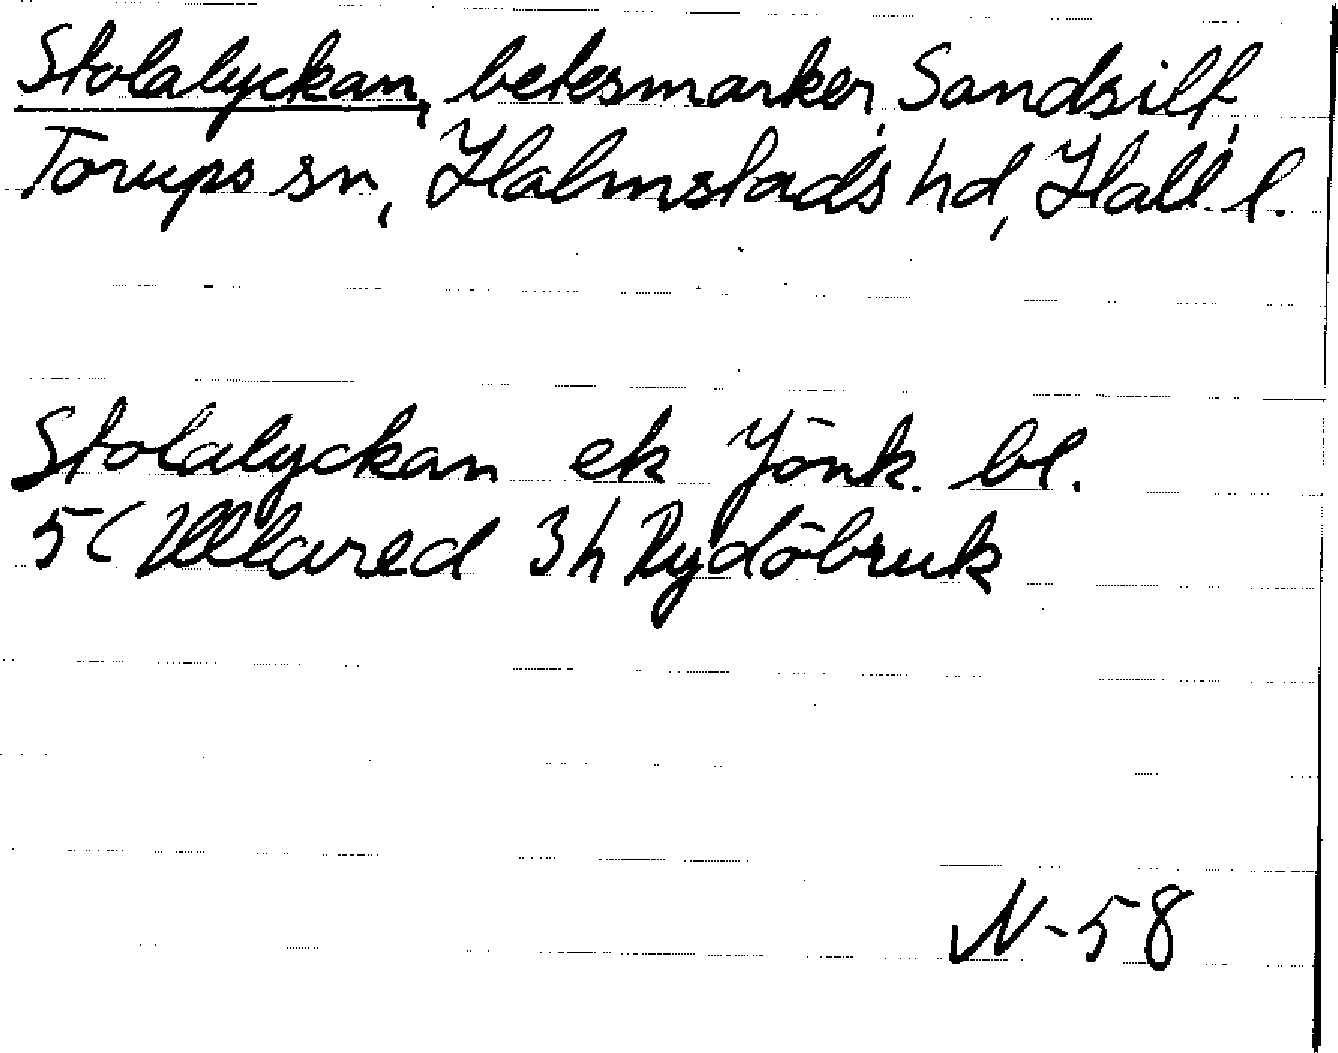 Stolalyckan, betesmarker, Sandsilt,
Torups sn, Halmstads hd, Hall. l.
Stolalyckan ek Jönk. bl.
5C Ullared 3h Rydöbruk
N-58